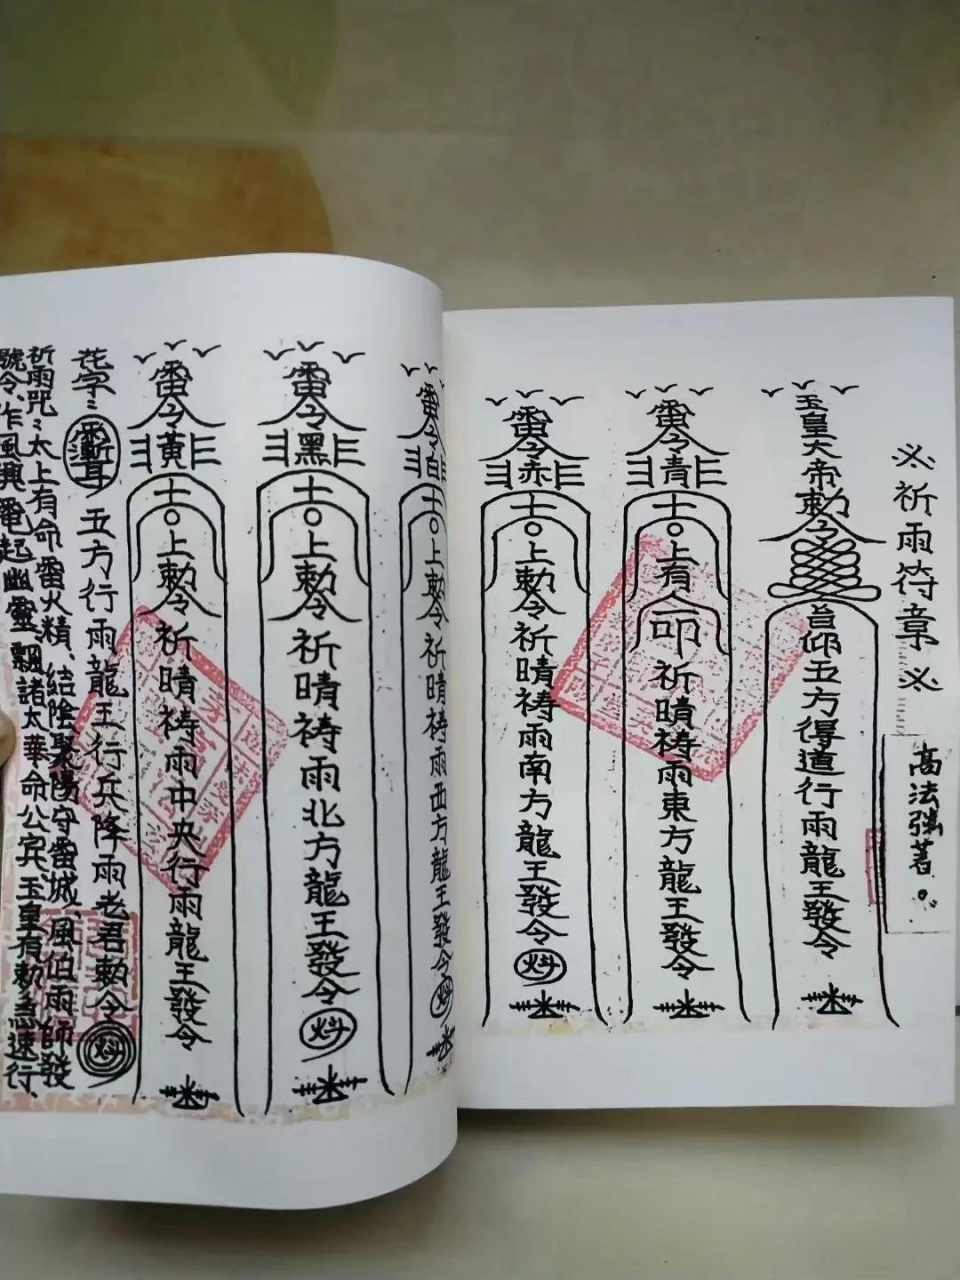 祈雨符章
高法強著。
玉皇大帝勅令
旨仰五方得道行雨龍王發令
雷令
青
上有命祈晴祷雨東方龍王發令
雷令
赤
上勅令祈晴祷雨南方龍王發令
雷令
白
上勅令祈晴祷雨西方龍王發令
雷令
黑
上勅令祈晴祷雨北方龍王發令
雷令
黃
上勅令祈晴祷雨中央行雨龍王發令
花字:
五方行雨龍王行兵降雨老君勅令
祈雨咒:太上有命、雷火精、結陰聚陽、守雷城、風伯雨師發
號令、作風興電起幽靈、飄諸太華命公宾、玉皇有勅急速行、